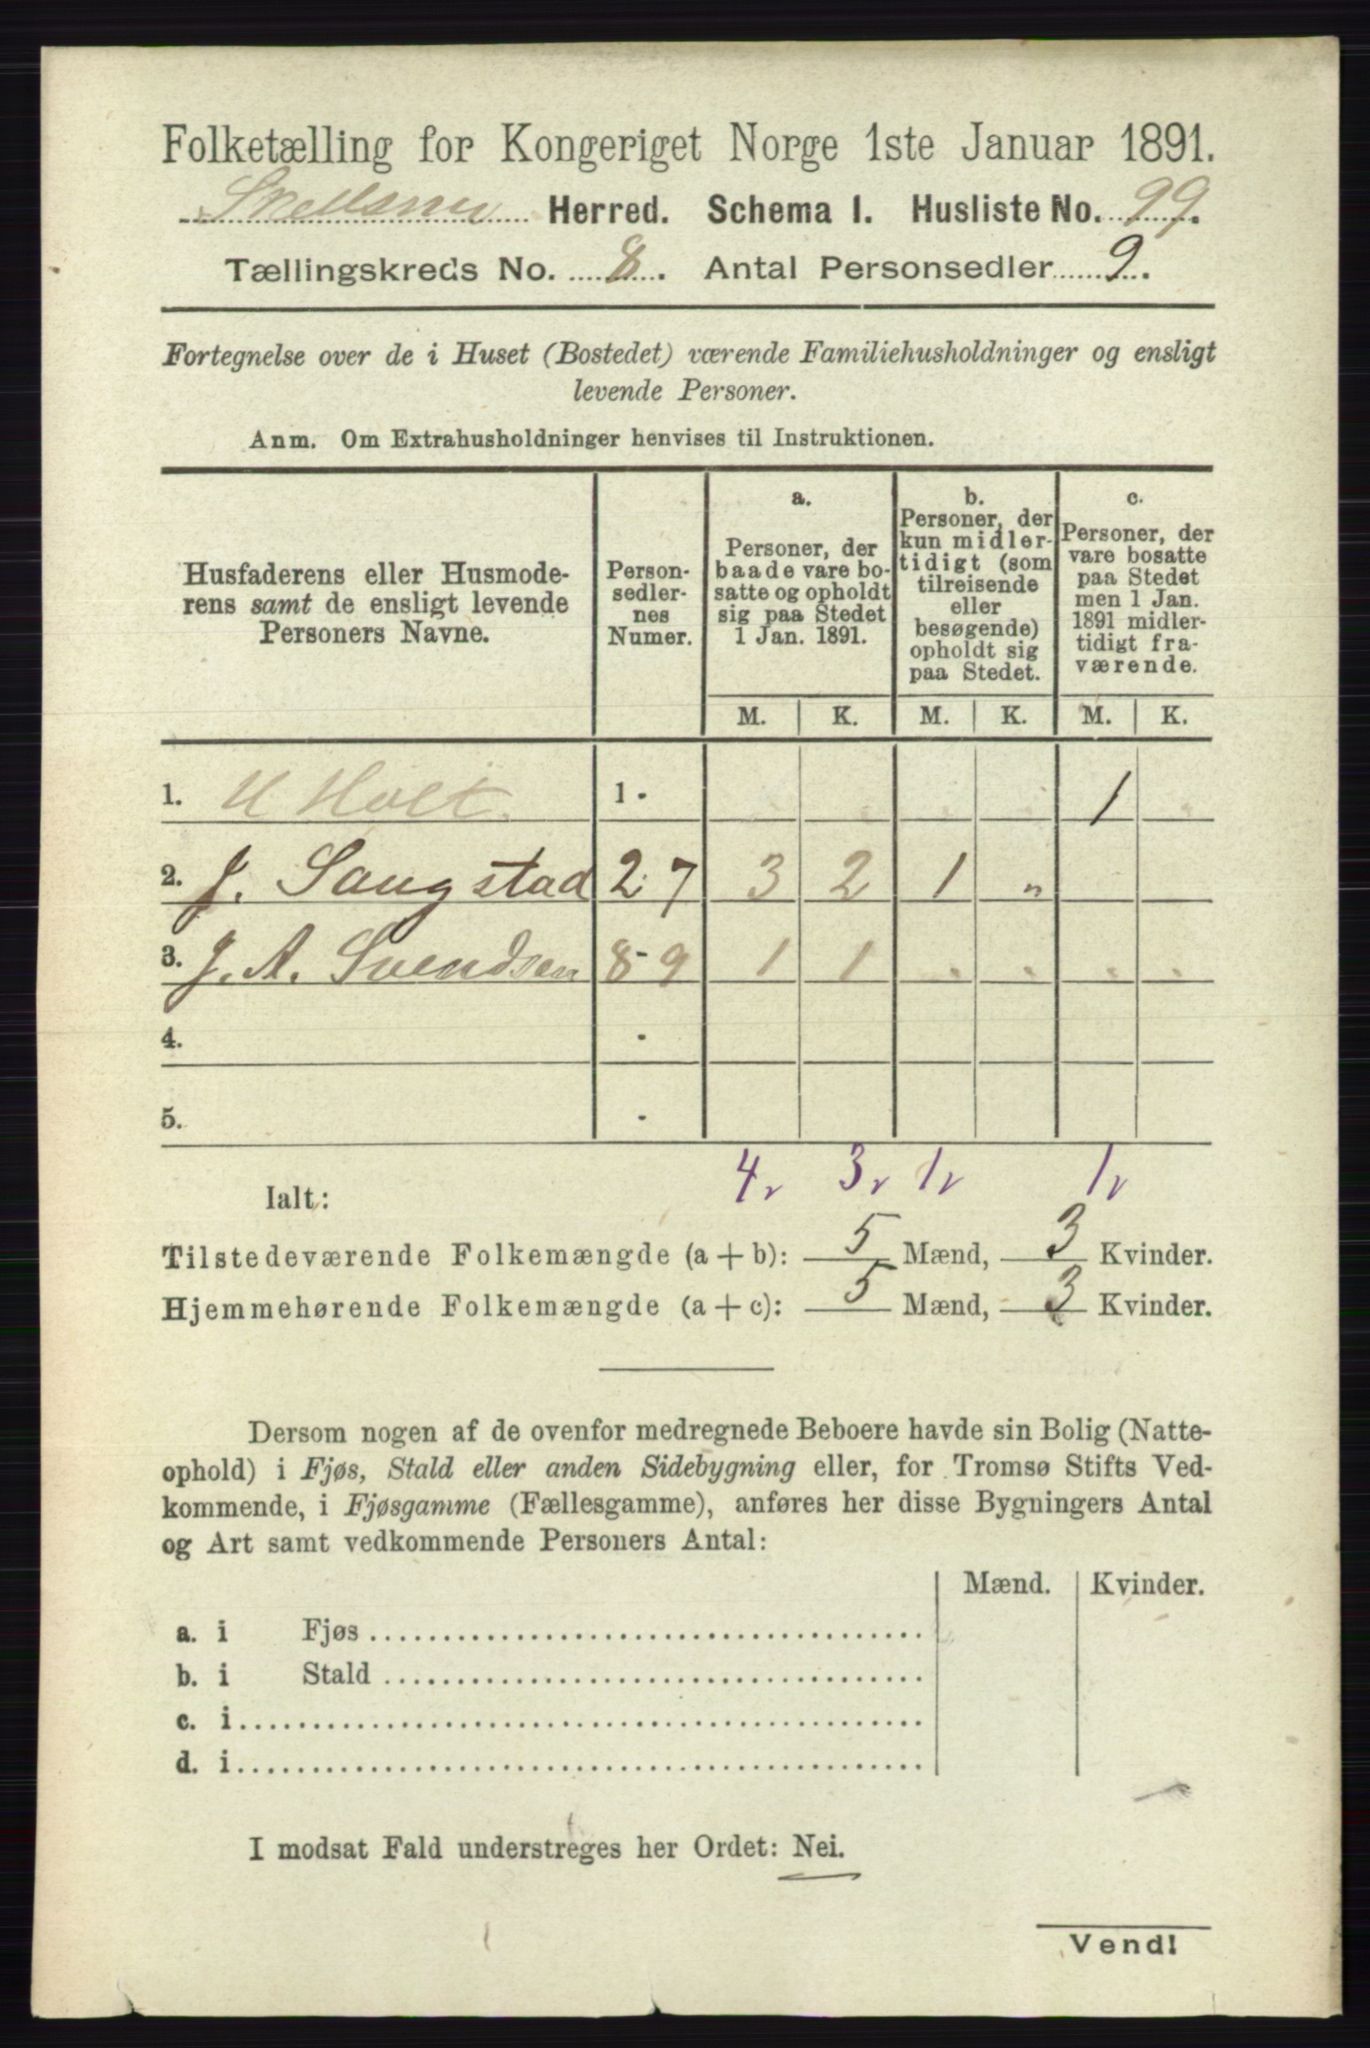 Folketælling for Kongeriget Norge 1ste Januar 1891.
Herred. Schema I. Husliste No. 99.
Tællingskreds No. 8. Antal Personsedler 9.
Fortegnelse over de i Huset (Bostedet) værende Familiehusholdninger og ensligt
levende Personer.
Anm. Om Extrahusholdninger henvises til Instruktionen.
Husfaderens eller Husmode-
rens samt de ensligt levende
Personers Navne.
Person-
sedler-
nes
Numer.
a.
Personer, der
baade vare bo-
satte og opholdt
sig paa Stedet
1 Jan. 1891.
b.
Personer, der
kun midler-
tidigt (som
tilreisende
eller
besøgende)
opholdt sig
paa Stedet.
c.
Personer, der
vare bosatte
paa Stedet
men 1 Jan.
1891 midler-
tidigt fra-
værende.
M. K. M. K. M. K.
1. H Holt. 1 - 1
2. J. Saugstad 2 - 7 3 2 1 "
3. J. A. Svendsen 8-9 1 1 . . . .
4. -
5. -
Ialt: 4 v 3 v 1 v 1 v
Tilstedeværende Folkemængde (a + b): 5 Mænd, 3 Kvinder.
Hjemmehørende Folkemængde (a + c): 5 Mænd, 3 Kvinder.
Dersom nogen af de ovenfor medregnede Beboere havde sin Bolig (Natte-
ophold) i Fjøs, Stald eller anden Sidebygning eller, for Tromsø Stifts Ved-
kommende, i Fjøsgamme (Fællesgamme), anføres her disse Bygningers Antal
og Art samt vedkommende Personers Antal:
Mænd. Kvinder.
a. i Fjøs
b. i Stald
c. i
d. i
I modsat Fald understreges her Ordet: Nei.
Vend!